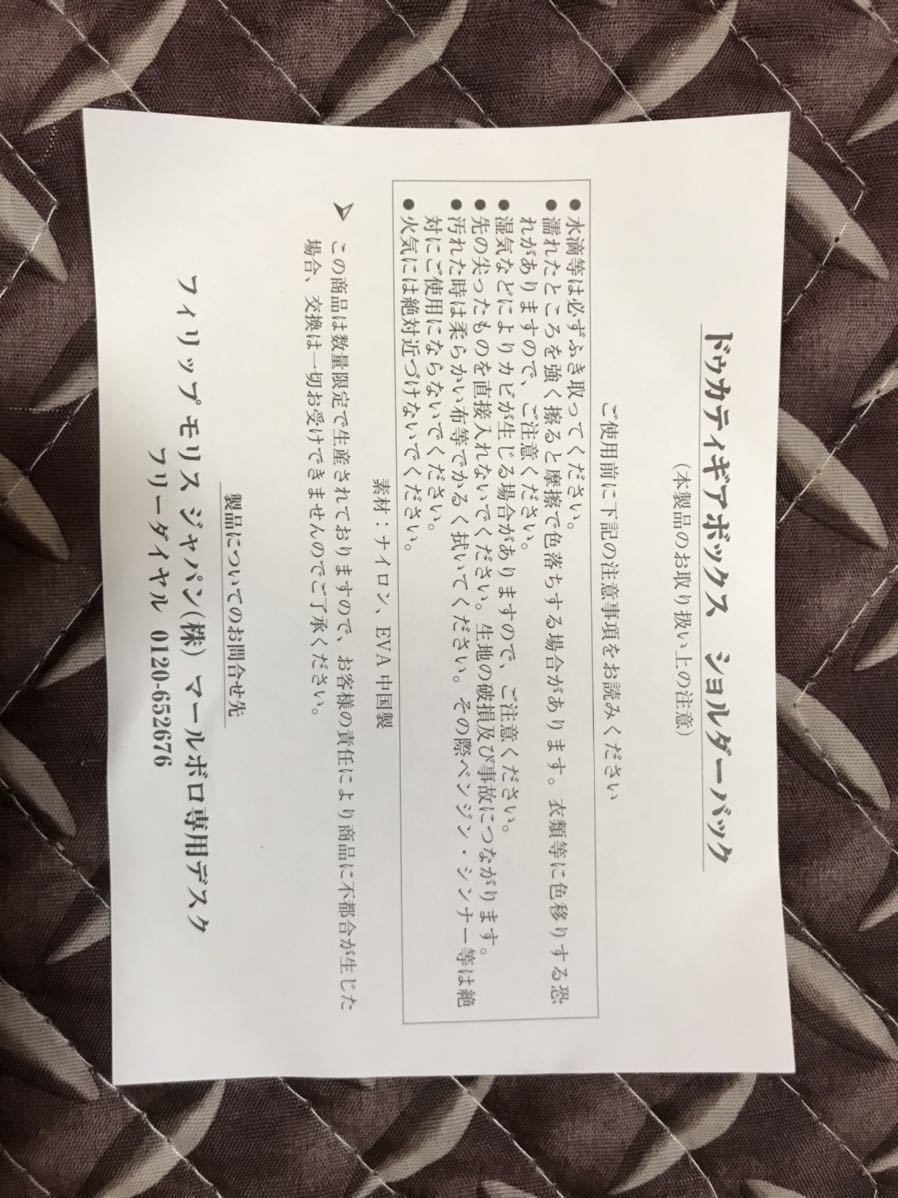 ドゥカティギアボックス　ショルダーバック
(本製品のお取り扱い上の注意)
ご使用前に下記の注意事項をお読みください
●水滴等は必ずふき取ってください。
●濡れたところを強く擦ると摩擦で色落ちする場合があります。衣類等に色移りする恐
れがありますので、ご注意ください。
●湿気などによりカビが生じる場合がありますので、ご注意ください。
●先の尖ったものを直接入れないでください。生地の破損及び事故につながります。
●汚れた時は柔らかい布等でかるく拭いてください。その際ベンジン・シンナー等は絶
対にご使用にならないでください。
●火気には絶対近づけないでください。
素材：ナイロン、EVA 中国製
➢ この商品は数量限定で生産されておりますので、お客様の責任により商品に不都合が生じた
場合、交換は一切お受けできませんのでご了承ください。
製品についてのお問合せ先
フィリップ モリス ジャパン(株) マールボロ専用デスク
フリーダイヤル 0120-652676